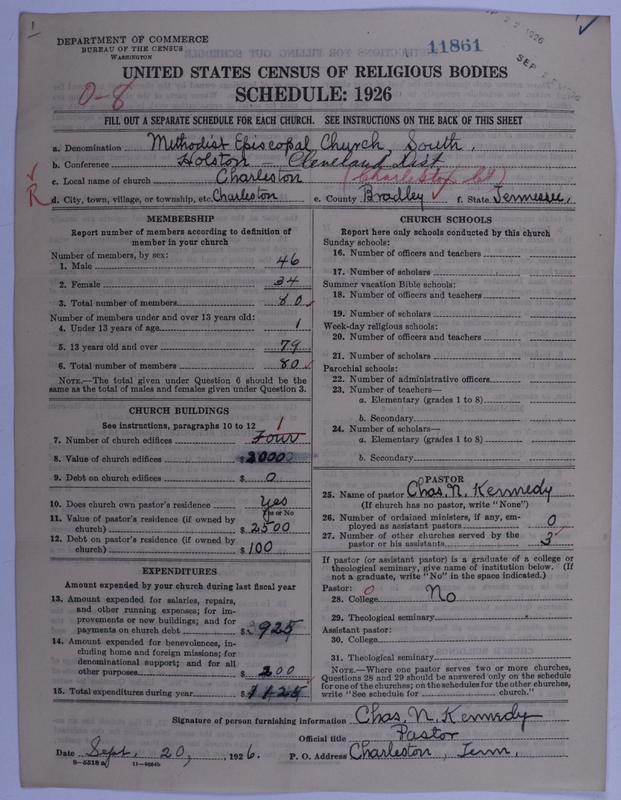 1
DEPARTMENT OF COMMERCE
BUREAU OF THE CENSUS
WASHINGTON
11861
SEP
1926
UNITED STATES CENSUS OF RELIGIOUS BODIES
0-8
SCHEDULE: 1926
FILL OUT A SEPARATE SCHEDULE FOR EACH CHURCH. SEE INSTRUCTIONS ON THE BACK OF THIS SHEET
a. Denomination Methodist Episcopal Church, South.
b. Conference Holston - Cleveland Dist
c. Local name of church Charleston (Charleston Ct)
R d. City, town, village, or township, etc. Charleston e. County Bradley f. State Tennessee,
MEMBERSHIP
Report number of members according to definition of
member in your church
Number of members, by sex:
1. Male 46
2. Female 34
3. Total number of members 80
Number of members under and over 13 years old:
4. Under 13 years of age 1
5. 13 years old and over 79
6. Total number of members 80
NOTE.—The total given under Question 6 should be the
same as the total of males and females given under Question 3.
CHURCH BUILDINGS
See instructions, paragraphs 10 to 12
1
7. Number of church edifices Four
8. Value of church edifices $2000
9. Debt on church edifices $ 0
10. Does church own pastor's residence Yes
Yes or No
11. Value of pastor's residence (if owned by
church) $2500
12. Debt on pastor's residence (if owned by
church) $100
EXPENDITURES
Amount expended by your church during last fiscal year
13. Amount expended for salaries, repairs,
and other running expenses; for im-
provements or new buildings; and for
payments on church debt $ 925
14. Amount expended for benevolences, in-
cluding home and foreign missions; for
denominational support; and for all
other purposes $ 200
15. Total expenditures during year $ 1125
CHURCH SCHOOLS
Report here only schools conducted by this church
Sunday schools:
16. Number of officers and teachers
17. Number of scholars
Summer vacation Bible schools:
18. Number of officers and teachers
19. Number of scholars
Week-day religious schools:
20. Number of officers and teachers
21. Number of scholars
Parochial schools:
22. Number of administrative officers
23. Number of teachers—
a. Elementary (grades 1 to 8)
b. Secondary
24. Number of scholars—
a. Elementary (grades 1 to 8)
b. Secondary
PASTOR
25. Name of pastor Chas. N. Kennedy
(If church has no pastor, write "None")
26. Number of ordained ministers, if any, em-
ployed as assistant pastors 0
27. Number of other churches served by the
pastor or his assistants 3
If pastor (or assistant pastor) is a graduate of a college or
theological seminary, give name of institution below. (If
not a graduate, write "No" in the space indicated.)
Pastor: 0
28. College No
29. Theological seminary
Assistant pastor:
30. College
31. Theological seminary
NOTE.—Where one pastor serves two or more churches,
Questions 28 and 29 should be answered only on the schedule
for one of the churches; on the schedules for the other churches,
write "See schedule for church."
Signature of person furnishing information Chas. N. Kennedy
Official title Pastor
Date Sept. 20, 1926. P. O. Address Charleston, Tenn.
8-5518 a